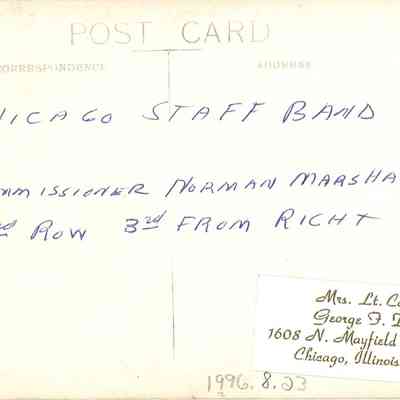 POST CARD
CORRESPONDENCE ADDRESS
HICAGO STAFF BAND
MMISSIONER NORMAN MARSHA
nd ROW 3rd FROM RIGHT
Mrs. Lt. Co
George F.
1608 N. Mayfield
Chicago, Illinois
1996.8.23